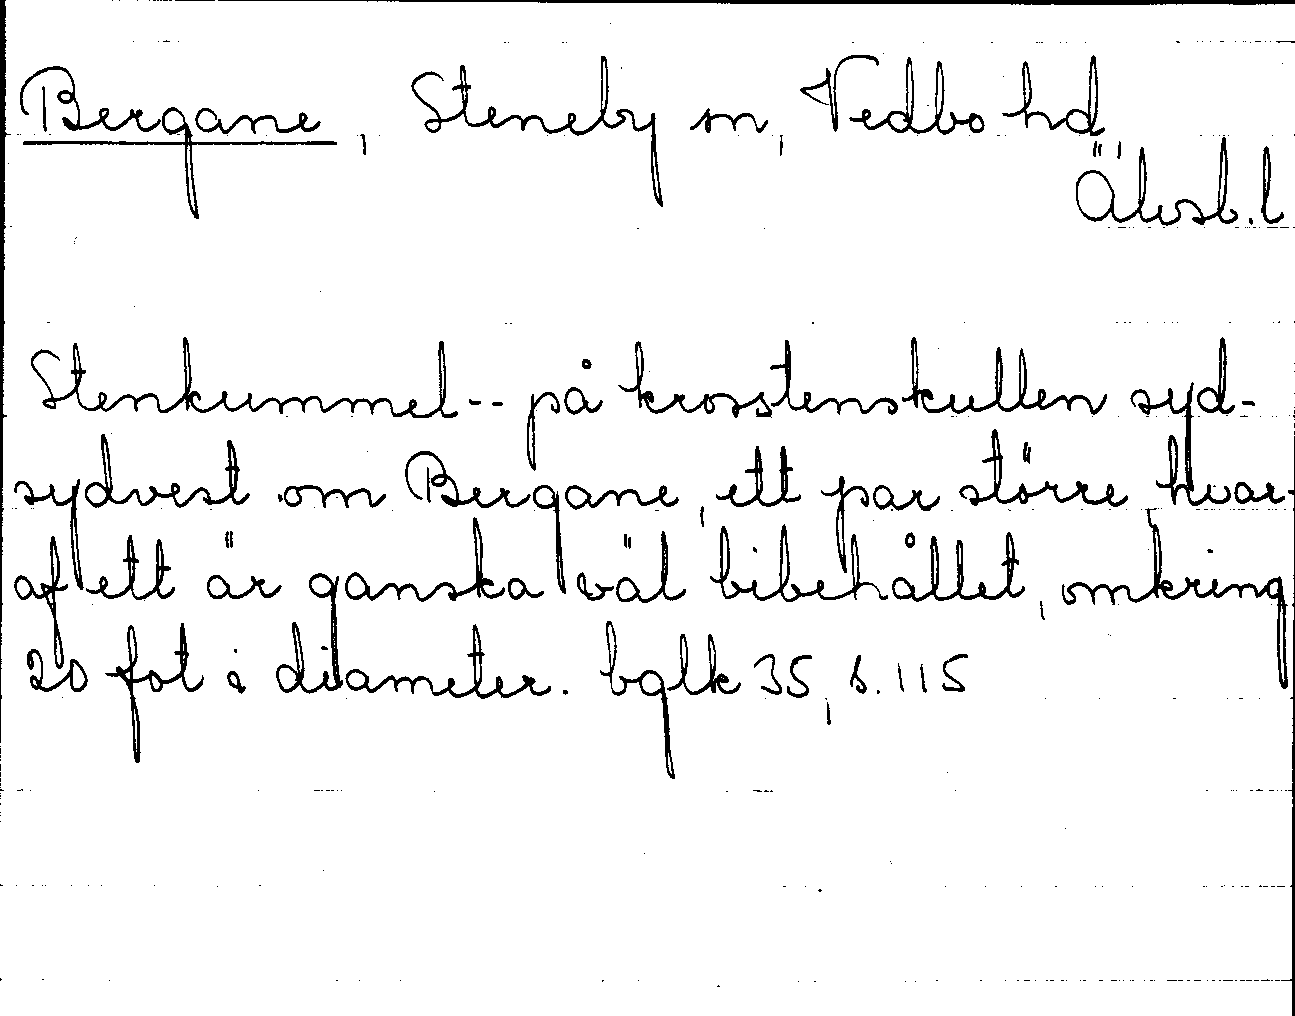 Bergane, Steneby sn, Vedbo hd,
Älvsb. l
Stenkummel -- på krosstenskullen syd-
sydvest om Bergane, ett par större, hvar-
af ett är ganska väl bibehållet, omkring
20 fot i diameter. bglk 35, s. 115